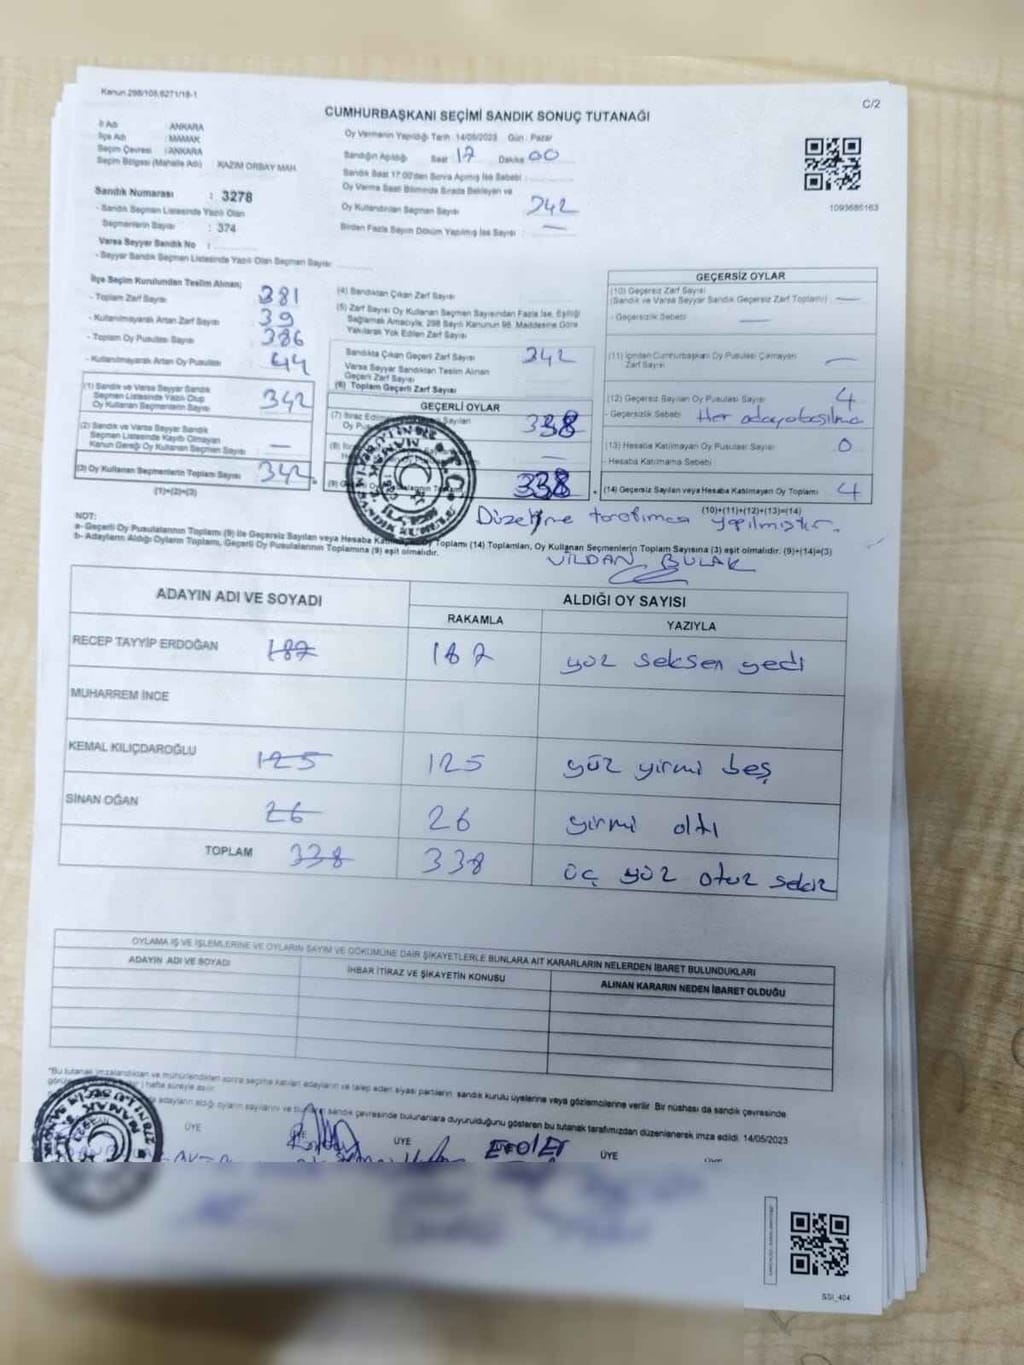 Kanun 298/105,6271/18-1
C/2
CUMHURBAŞKANI SEÇİMİ SANDIK SONUÇ TUTANAĞI
İl Adı : ANKARA
İlçe Adı : MAMAK
Seçim Çevresi : ANKARA
Seçim Bölgesi (Mahalle Adı) : KAZIM ORBAY MAH.
Sandık Numarası : 3278
- Sandık Seçmen Listesinde Yazılı Olan
Seçmenlerin Sayısı : 374
Varsa Seyyar Sandık No :
- Seyyar Sandık Seçmen Listesinde Yazılı Olan Seçmen Sayısı:
Oy Vermenin Yapıldığı Tarih :14/05/2023 Gün : Pazar
Sandığın Açıldığı Saat 17 Dakika 00
Sandık Saat 17:00'den Sonra Açılmış İse Sebebi :
Oy Verme Saati Bitiminde Sırada Bekleyen ve
Oy Kullandırılan Seçmen Sayısı 342
Birden Fazla Sayım Döküm Yapılmış İse Sayısı : —
1093685163
İlçe Seçim Kurulundan Teslim Alınan;
- Toplam Zarf Sayısı 381
- Kullanılmayarak Artan Zarf Sayısı 39
- Toplam Oy Pusulası Sayısı 386
- Kullanılmayarak Artan Oy Pusulası 44
(1) Sandık ve Varsa Seyyar Sandık
Seçmen Listesinde Yazılı Olup
Oy Kullanan Seçmenlerin Sayısı 342
(2) Sandık ve Varsa Seyyar Sandık
Seçmen Listesinde Kayıtlı Olmayan
Kanun Gereği Oy Kullanan Seçmen Sayısı —
(3) Oy Kullanan Seçmenlerin Toplam Sayısı 342
(1)+(2)=(3)
(4) Sandıktan Çıkan Zarf Sayısı
(5) Zarf Sayısı Oy Kullanan Seçmen Sayısından Fazla İse, Eşitliği
Sağlamak Amacıyla, 298 Sayılı Kanunun 98. Maddesine Göre
Yakılarak Yok Edilen Zarf Sayısı
Sandıkta Çıkan Geçerli Zarf Sayısı 342
Varsa Seyyar Sandıktan Teslim Alınan
Geçerli Zarf Sayısı
(6) Toplam Geçerli Zarf Sayısı
GEÇERLİ OYLAR
(7) İtiraz Edilm Sayılan
Oy Pus 338
(8) İtira —
(9) G Toplamı 338
GEÇERSİZ OYLAR
(10) Geçersiz Zarf Sayısı
(Sandık ve Varsa Seyyar Sandık Geçersiz Zarf Toplamı) —
- Geçersizlik Sebebi —
(11) İçinden Cumhurbaşkanı Oy Pusulası Çıkmayan
Zarf Sayısı —
(12) Geçersiz Sayılan Oy Pusulası Sayısı 4
- Geçersizlik Sebebi Her adaya basılma
(13) Hesaba Katılmayan Oy Pusulası Sayısı 0
- Hesaba Katılmama Sebebi
(14) Geçersiz Sayılan veya Hesaba Katılmayan Oy Toplamı 4
(10)+(11)+(12)+(13)=(14)
Düzeltme tarafımca yapılmıştır.
NOT:
a- Geçerli Oy Pusulalarının Toplamı (9) ile Geçersiz Sayılan veya Hesaba Katılmayan Oy Toplamı (14) Toplamları, Oy Kullanan Seçmenlerin Toplam Sayısına (3) eşit olmalıdır. (9)+(14)=(3)
b- Adayların Aldığı Oyların Toplamı, Geçerli Oy Pusulalarının Toplamına (9) eşit olmalıdır.
VİLDAN BULAK
ADAYIN ADI VE SOYADI
ALDIĞI OY SAYISI
RAKAMLA YAZIYLA
RECEP TAYYİP ERDOĞAN 187 187 yüz seksen yedi
MUHARREM İNCE
KEMAL KILIÇDAROĞLU 125 125 yüz yirmi beş
SİNAN OĞAN 26 26 yirmi altı
TOPLAM 338 338 üç yüz otuz sekiz
OYLAMA İŞ VE İŞLEMLERİNE VE OYLARIN SAYIM VE DÖKÜMÜNE DAİR ŞİKAYETLERLE BUNLARA AİT KARARLARIN NELERDEN İBARET BULUNDUKLARI
ADAYIN ADI VE SOYADI
İHBAR İTİRAZ VE ŞİKAYETİN KONUSU
ALINAN KARARIN NEDEN İBARET OLDUĞU
"Bu tutanak imzalandıktan ve mühürlendikten sonra seçime katılan adayların ve talep eden siyasi partilerin sandık kurulu üyelerine veya gözlemcilerine verilir. Bir nüshası da sandık çevresinde
) hafta süreyle asılır.
adayların aldığı oyların sayılarını ve bu sandık çevresinde bulunanlara duyurulduğunu gösteren bu tutanak tarafımızdan düzenlenerek imza edildi. 14/05/2023
ÜYE ÜYE ÜYE
SSI_404